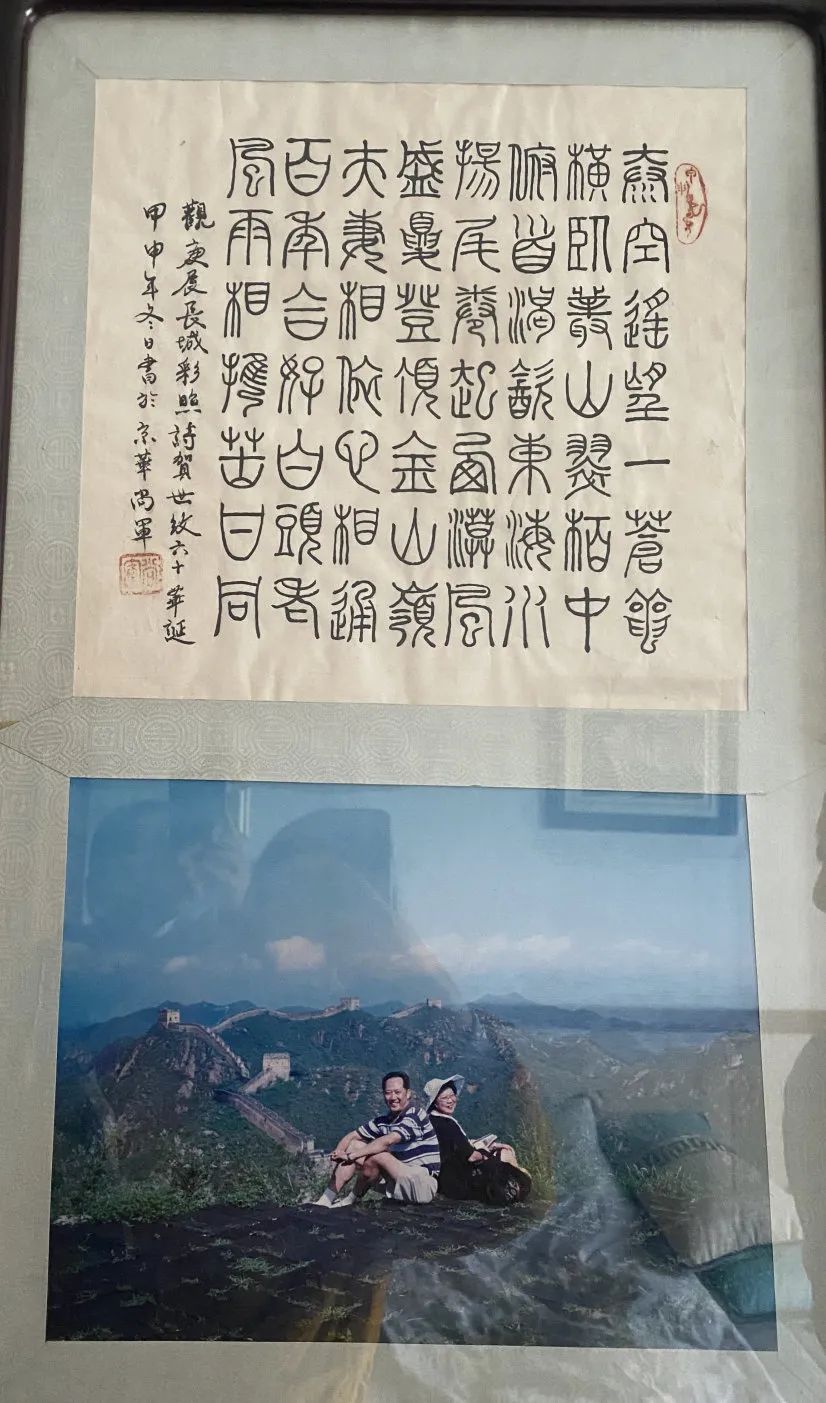 泰空遙望一蒼龍
橫臥叢山翠柏中
俯首渴飲東海水
揚尾卷起西漠風
盛夏登金山嶺
夫妻相依心相通
百年合好白頭老
風雨相攜苦甘同
觀庚辰長城彩照詩賀世紋六十華誕
甲申年冬日書於京華尚軍